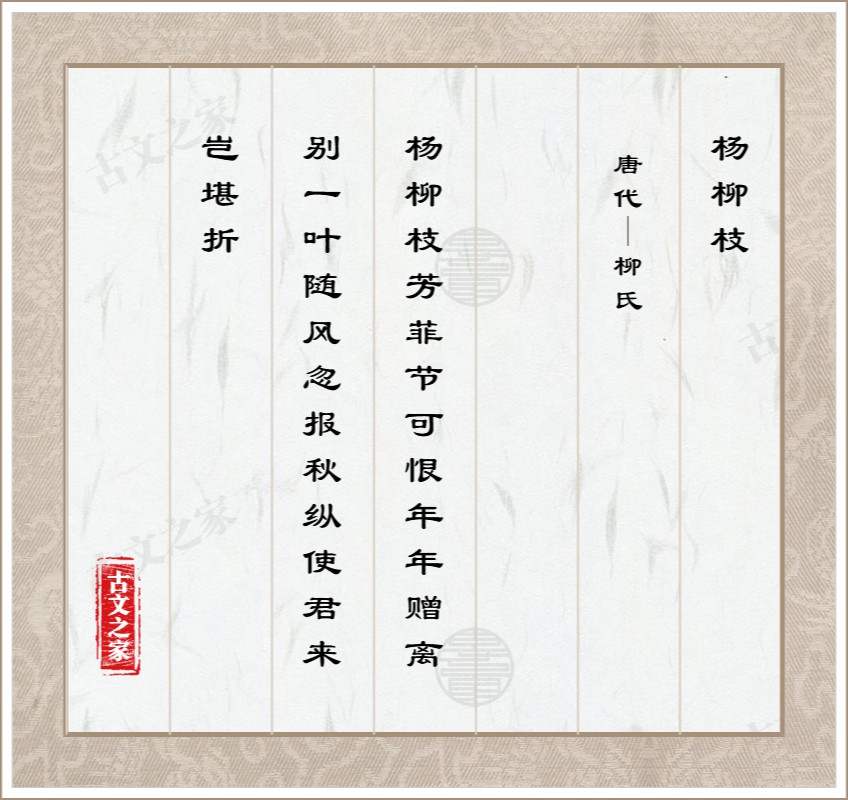 杨柳枝
唐代—柳氏
杨柳枝芳菲节可恨年年赠离
别一叶随风忽报秋纵使君来
岂堪折
古文之家
古文之家
古文之家
古